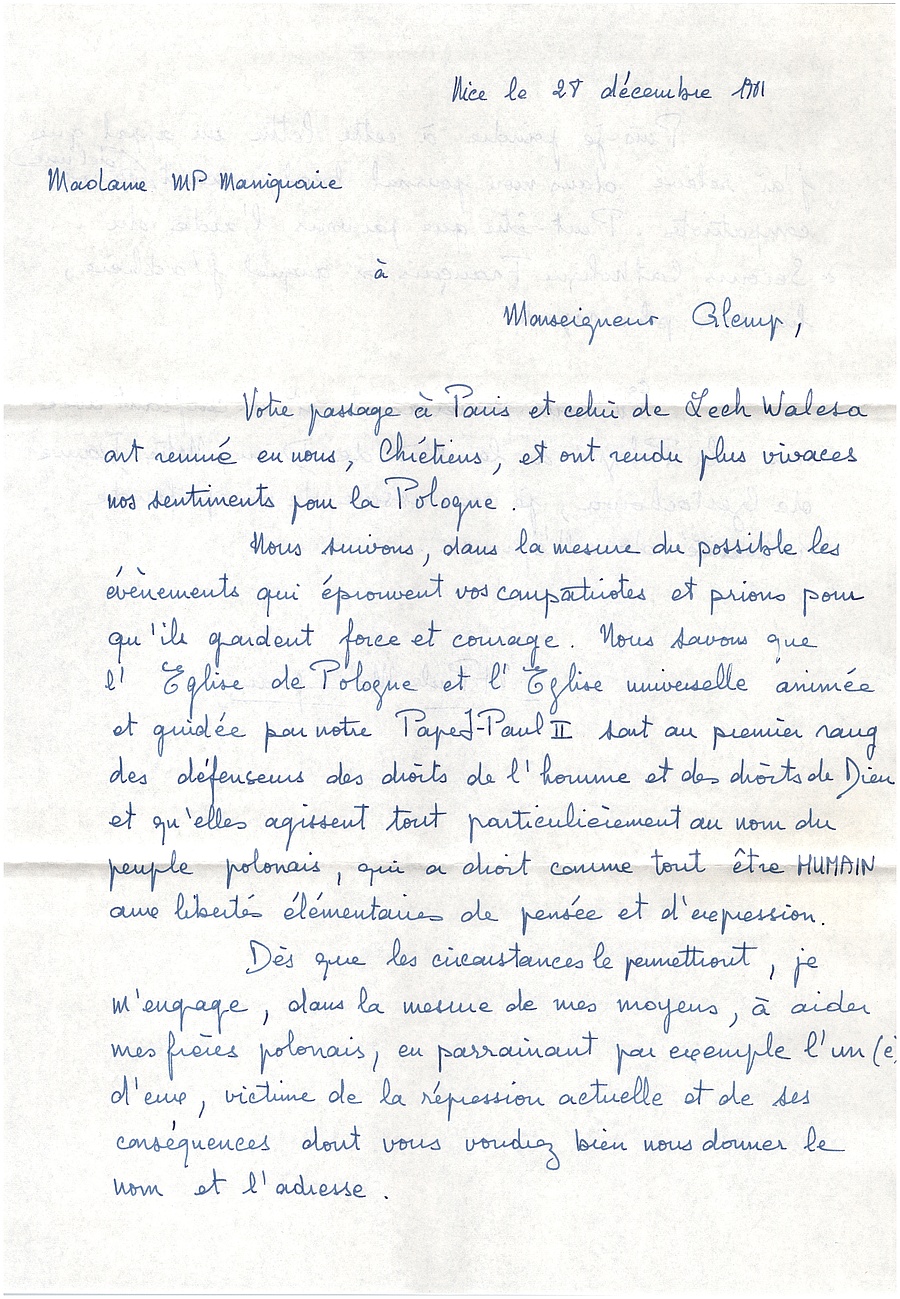 Nice le 28 décembre 1981
Madame MP Maniquaire
à
Monseigneur Glemp,
Votre passage à Paris et celui de Lech Walesa
ont remué en nous, Chrétiens, et ont rendu plus vivaces
nos sentiments pour la Pologne.
Nous suivons, dans la mesure du possible les
évènements qui éprouvent vos compatriotes et prions pour
qu'ils gardent force et courage. Nous savons que
l' Eglise de Pologne et l' Eglise universelle animée
et guidée par notre Pape J-Paul II sont au premier rang
des défenseurs des droits de l'homme et des droits de Dieu
et qu'elles agissent tout particulièrement au nom du
peuple polonais, qui a droit comme tout être HUMAIN
aux libertés élémentaires de pensée et d'expression.
Dès que les circonstances le permettront, je
m'engage, dans la mesure de mes moyens, à aider
mes frères polonais, en parrainant par exemple l'un (e)
d'eux, victime de la répression actuelle et de ses
conséquences dont vous voudrez bien nous donner le
nom et l'adresse.